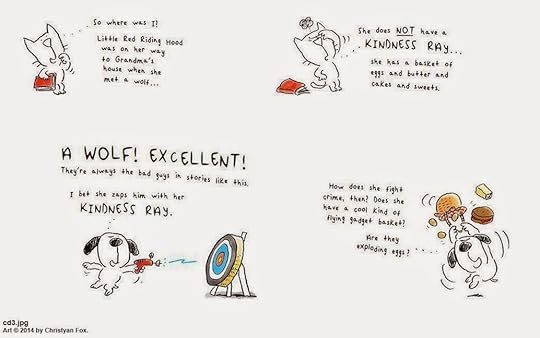 So where was I?
Little Red Riding Hood
was on her way
to Grandma's
house when she
met a wolf...
A WOLF! EXCELLENT!
They're always the bad guys in stories like this.
I bet she zaps him with her
KINDNESS RAY.
She does NOT have a
KINDNESS RAY...
she has a basket of
eggs and butter and
cakes and sweets.
How does she fight
crime, then? Does she
have a cool kind of
flying gadget basket?
Are they
exploding eggs?
cd3.jpg
Art © 2014 by Christyan Fox.